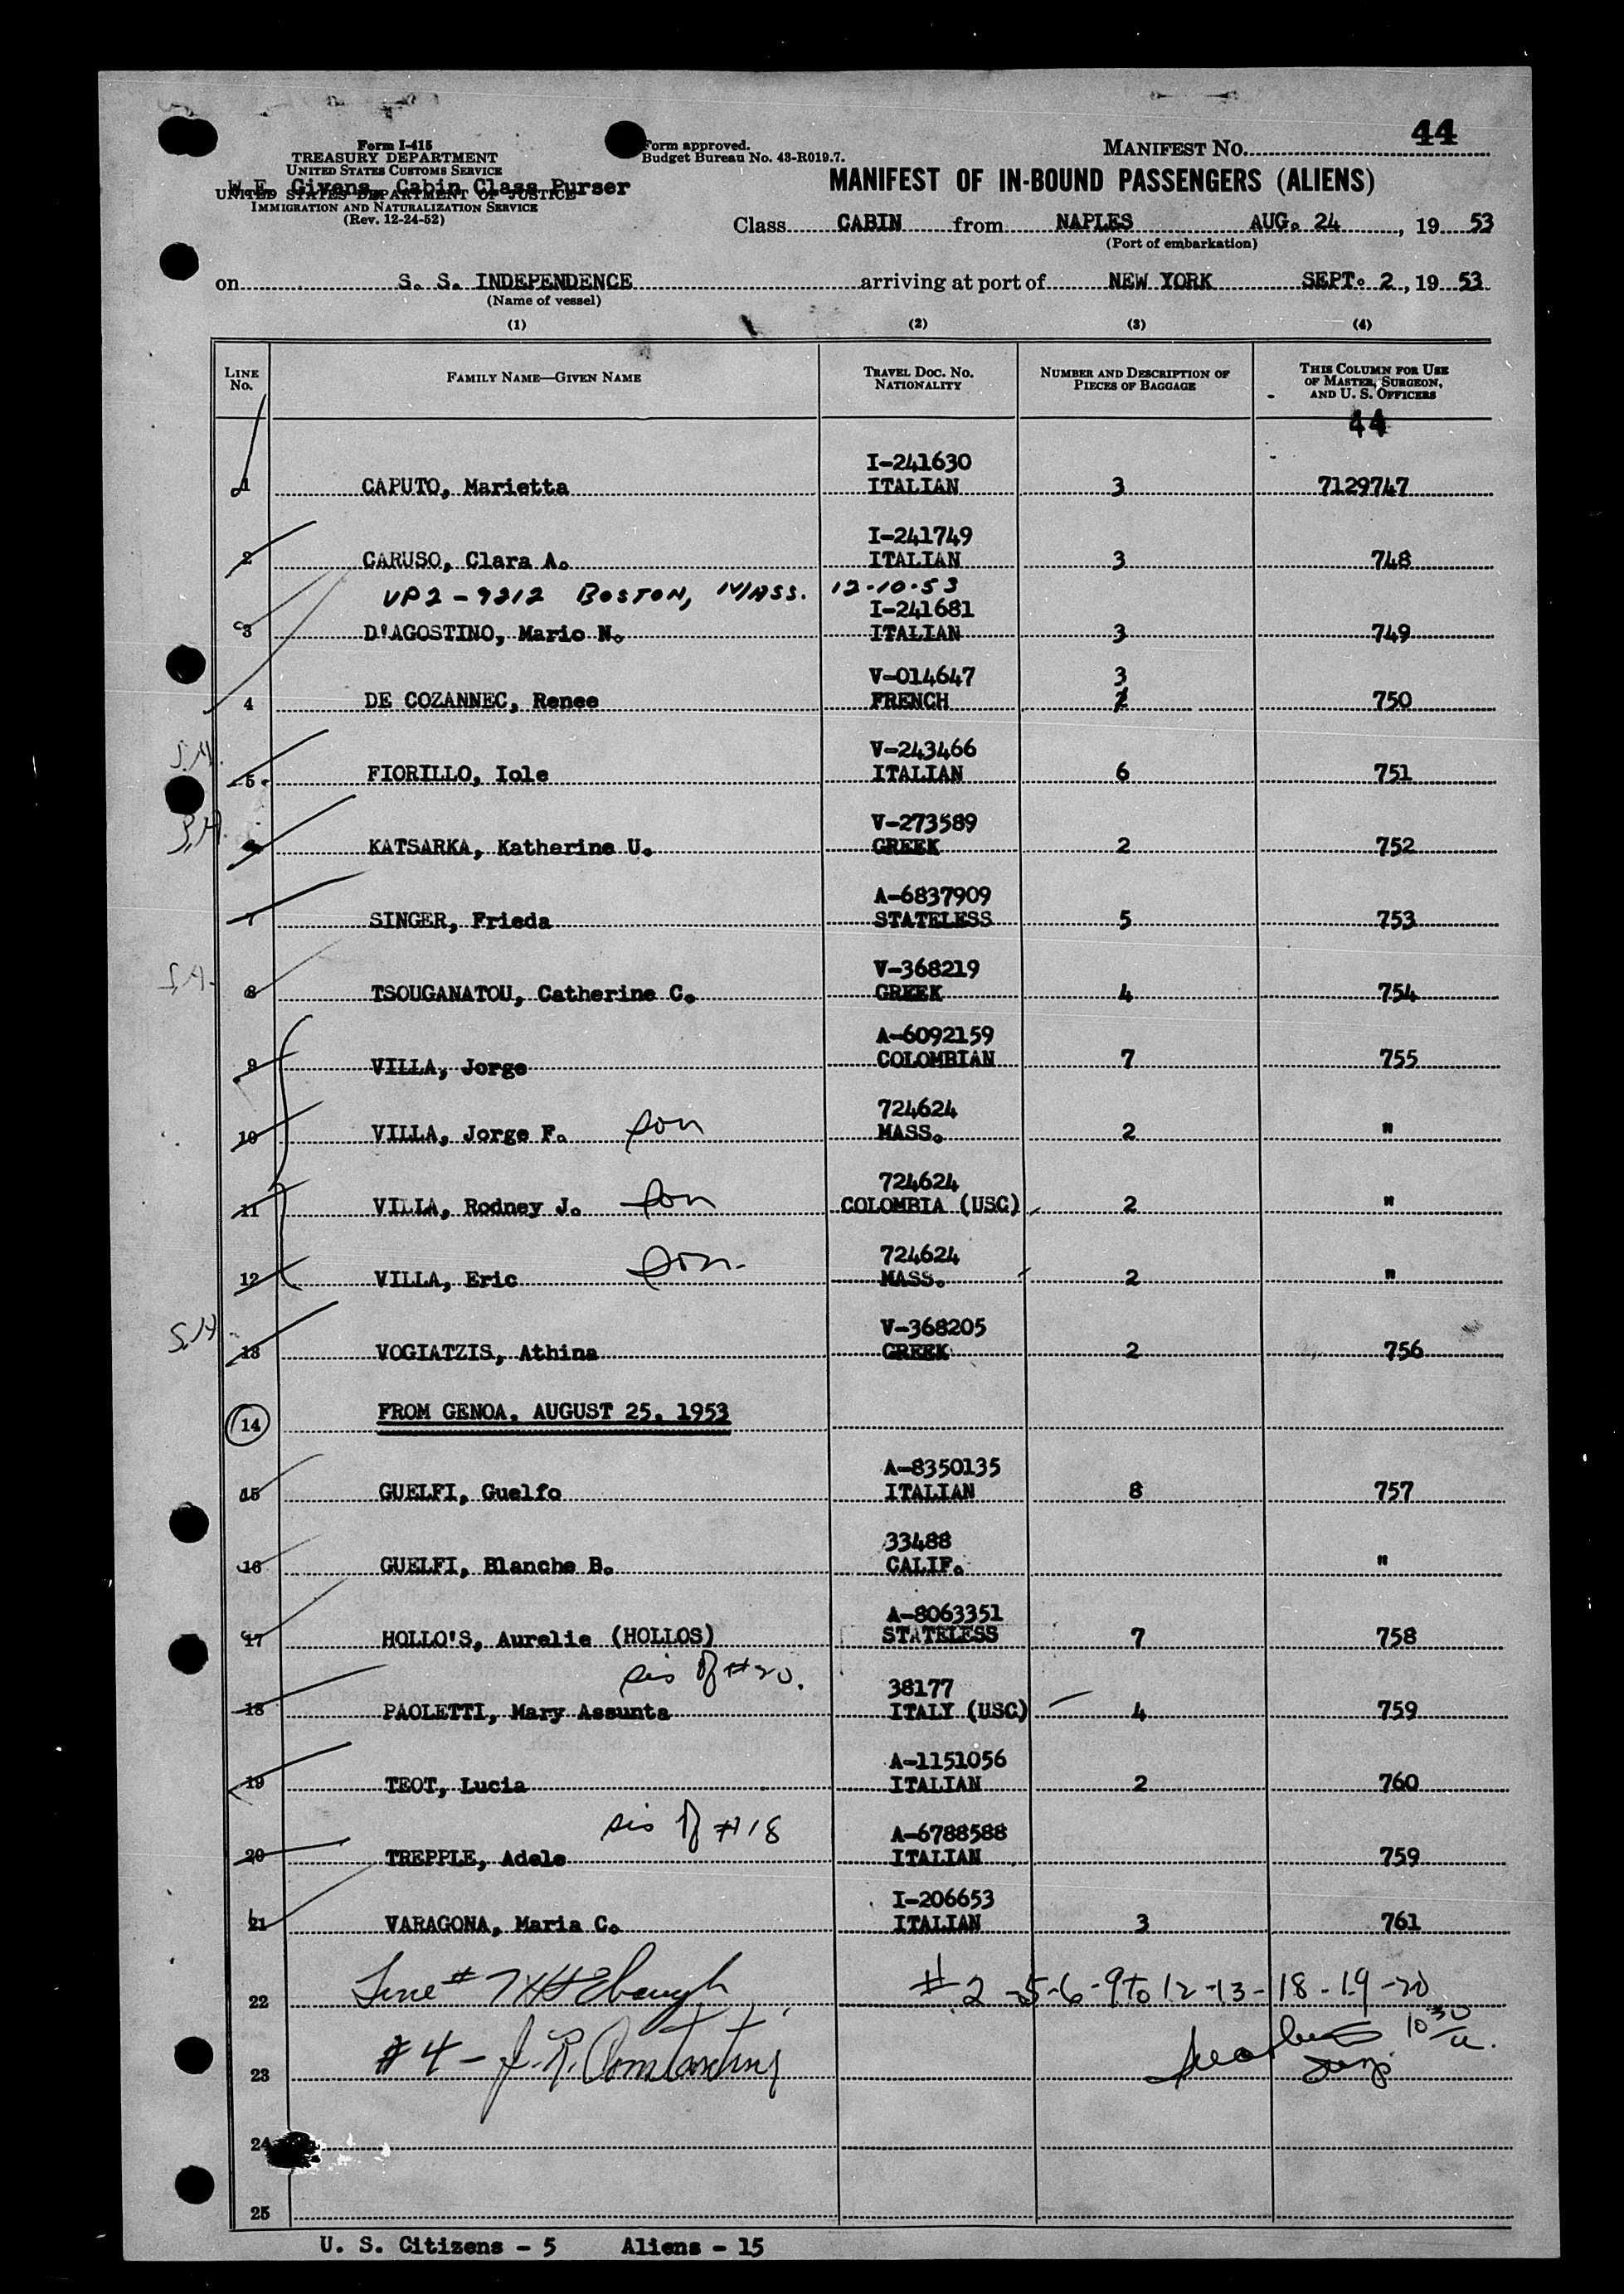 44
Form I-415
TREASURY DEPARTMENT
UNITED STATES CUSTOMS SERVICE
W.E. Givens, Cabin Class Purser
UNITED STATES DEPARTMENT OF JUSTICE
IMMIGRATION AND NATURALIZATION SERVICE
(Rev. 12-24-52)
Form approved.
Budget Bureau No. 43-R019.7.
MANIFEST NO.
MANIFEST OF IN-BOUND PASSENGERS (ALIENS)
Class CABIN from NAPLES AUG. 24, 1953
(Port of embarkation)
on S. S. INDEPENDENCE arriving at port of NEW YORK SEPT. 2, 1953
(Name of vessel)
(1) (2) (3) (4)
LINE No. FAMILY NAME—GIVEN NAME TRAVEL DOC. NO. NATIONALITY NUMBER AND DESCRIPTION OF PIECES OF BAGGAGE THIS COLUMN FOR USE OF MASTER, SURGEON, AND U. S. OFFICERS
44
I-241630
1 CAPUTO, Marietta ITALIAN 3 7129747
I-241749
2 CARUSO, Clara A. ITALIAN 3 748
VP2-9212 BOSTON, MASS. 12-10-53
I-241681
3 D'AGOSTINO, Mario N. ITALIAN 3 749
V-014647 3
4 DE COZANNEC, Renee FRENCH 2 750
S.H. V-243466
5 FIORILLO, Iole ITALIAN 6 751
S.H. V-273589
KATSARKA, Katherine U. GREEK 2 752
A-6837909
7 SINGER, Frieda STATELESS 5 753
S.H. V-368219
8 TSOUGANATOU, Catherine C. GREEK 4 754
A-6092159
9 VILLA, Jorge COLOMBIAN 7 755
724624
10 VILLA, Jorge F. son MASS. 2 "
724624
11 VILLA, Rodney J. son COLOMBIA (USC) 2 "
724624
12 VILLA, Eric son. MASS. 2 "
S.H. V-368205
13 VOGIATZIS, Athina GREEK 2 756
14 FROM GENOA, AUGUST 25, 1953
A-8350135
15 GUELFI, Guelfo ITALIAN 8 757
33488
16 GUELFI, Blanche B. CALIF. "
A-8063351
17 HOLLO'S, Aurelie (HOLLOS) STATELESS 7 758
sis of #20. 38177
18 PAOLETTI, Mary Assunta ITALY (USC) 4 759
A-1151056
19 TEOT, Lucia ITALIAN 2 760
sis of #18 A-6788588
20 TREPPLE, Adele ITALIAN 759
I-206653
21 VARAGONA, Maria C. ITALIAN 3 761
22 Line #7 #2-5-6-9 to 12-13-18-19-20
10 30/a.
23 #4 - J. R.
24
25
U. S. Citizens - 5 Aliens - 15